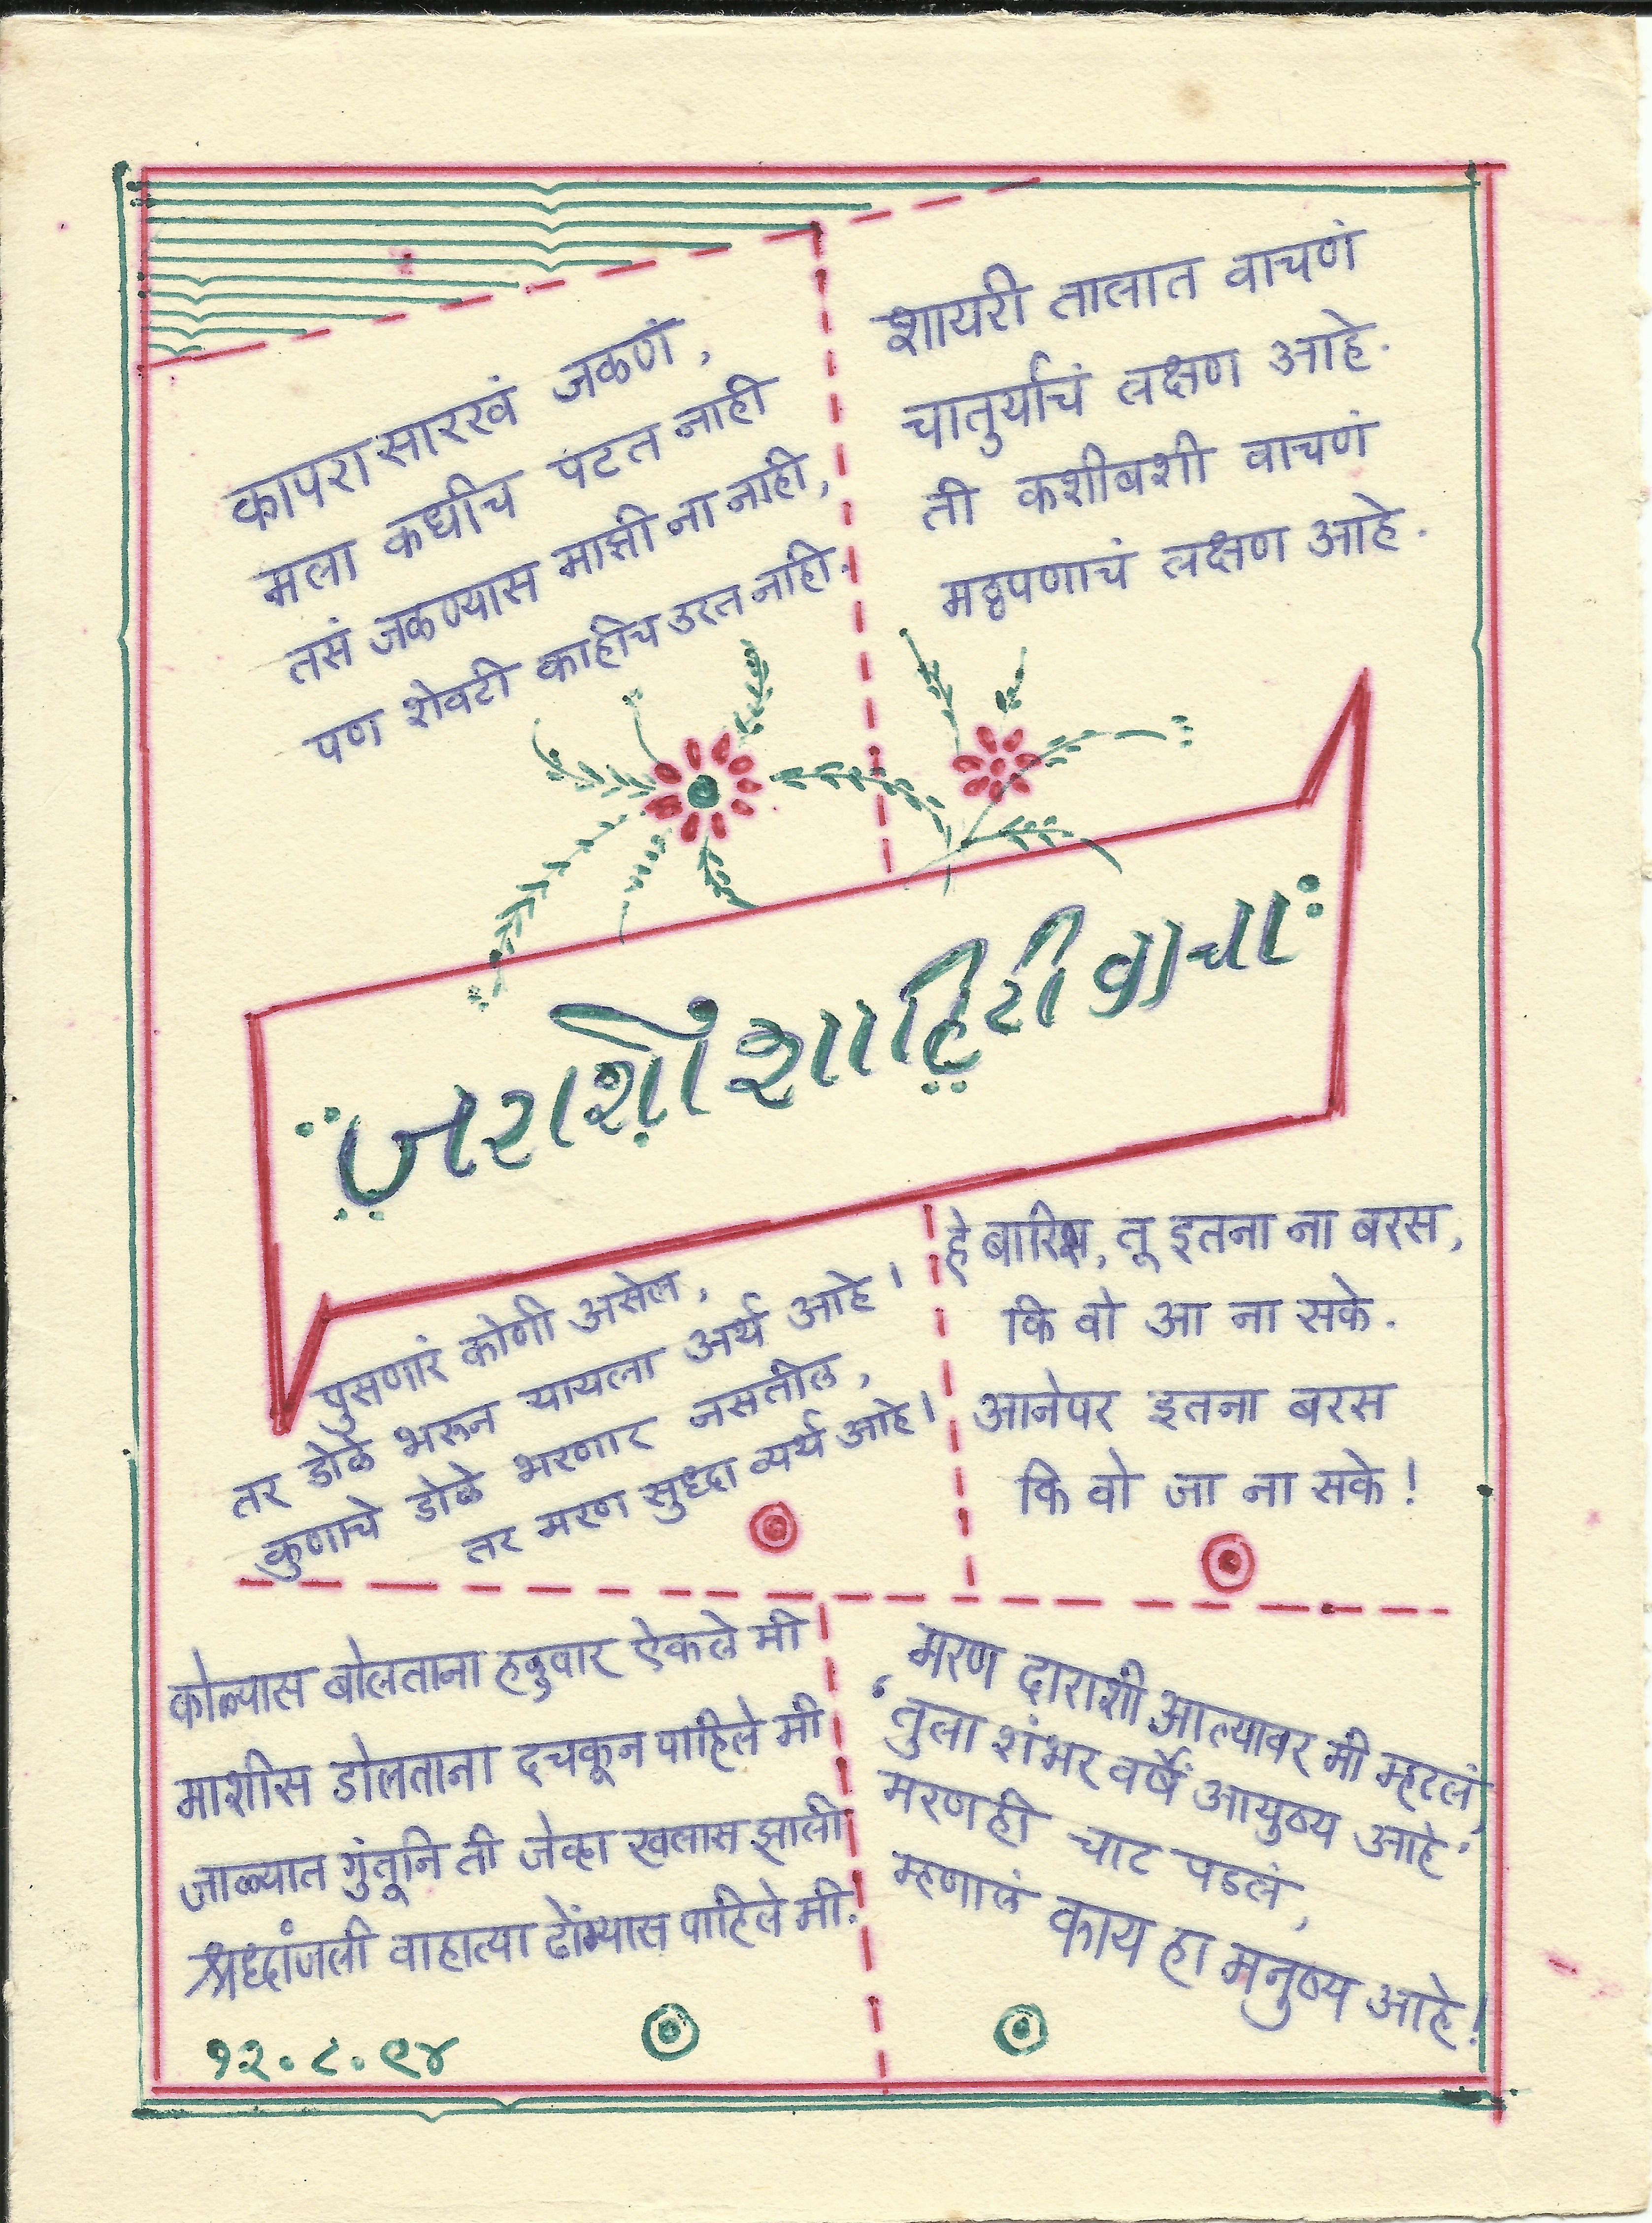 कापरासारखं जळणं,
मला कधीच पटत नाही
तसं जळण्यास माझी ना नाही,
पण शेवटी काहीच उरत नाही.
शायरी तालात वाचणं
चातुर्याचं लक्षण आहे.
ती कशीबशी वाचणं
मठ्ठपणाचं लक्षण आहे.
जराशी शाहिरी वाचा
पुसणारं कोणी असेल,
तर डोळे भरून यायला अर्थ आहे।
कुणाचे डोळे भरणार नसतील,
तर मरण सुध्दा व्यर्थ आहे।
हे बारिश, तू इतना ना बरस,
कि वो आ ना सके.
आनेपर इतना बरस
कि वो जा ना सके!
कोळ्यास बोलताना हळुवार ऐकले मी
माशीस डोलताना दचकून पाहिले मी
जाळ्यात गुंतूनि ती जेव्हा खलास झाली
श्रध्दांजली वाहात्या ढोंग्यास पाहिले मी.
मरण दाराशी आल्यावर मी म्हटलं,
'तुला शंभर वर्षे आयुष्य आहे'
मरणही चाट पडलं,
म्हणालं काय हा मनुष्य आहे!
१२.८.९४